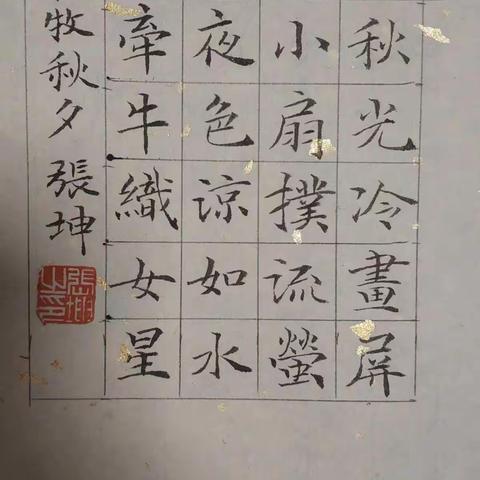 秋光冷畫屏
小扇撲流螢
夜色涼如水
牽牛織女星
牧秋夕 張坤
張坤之印